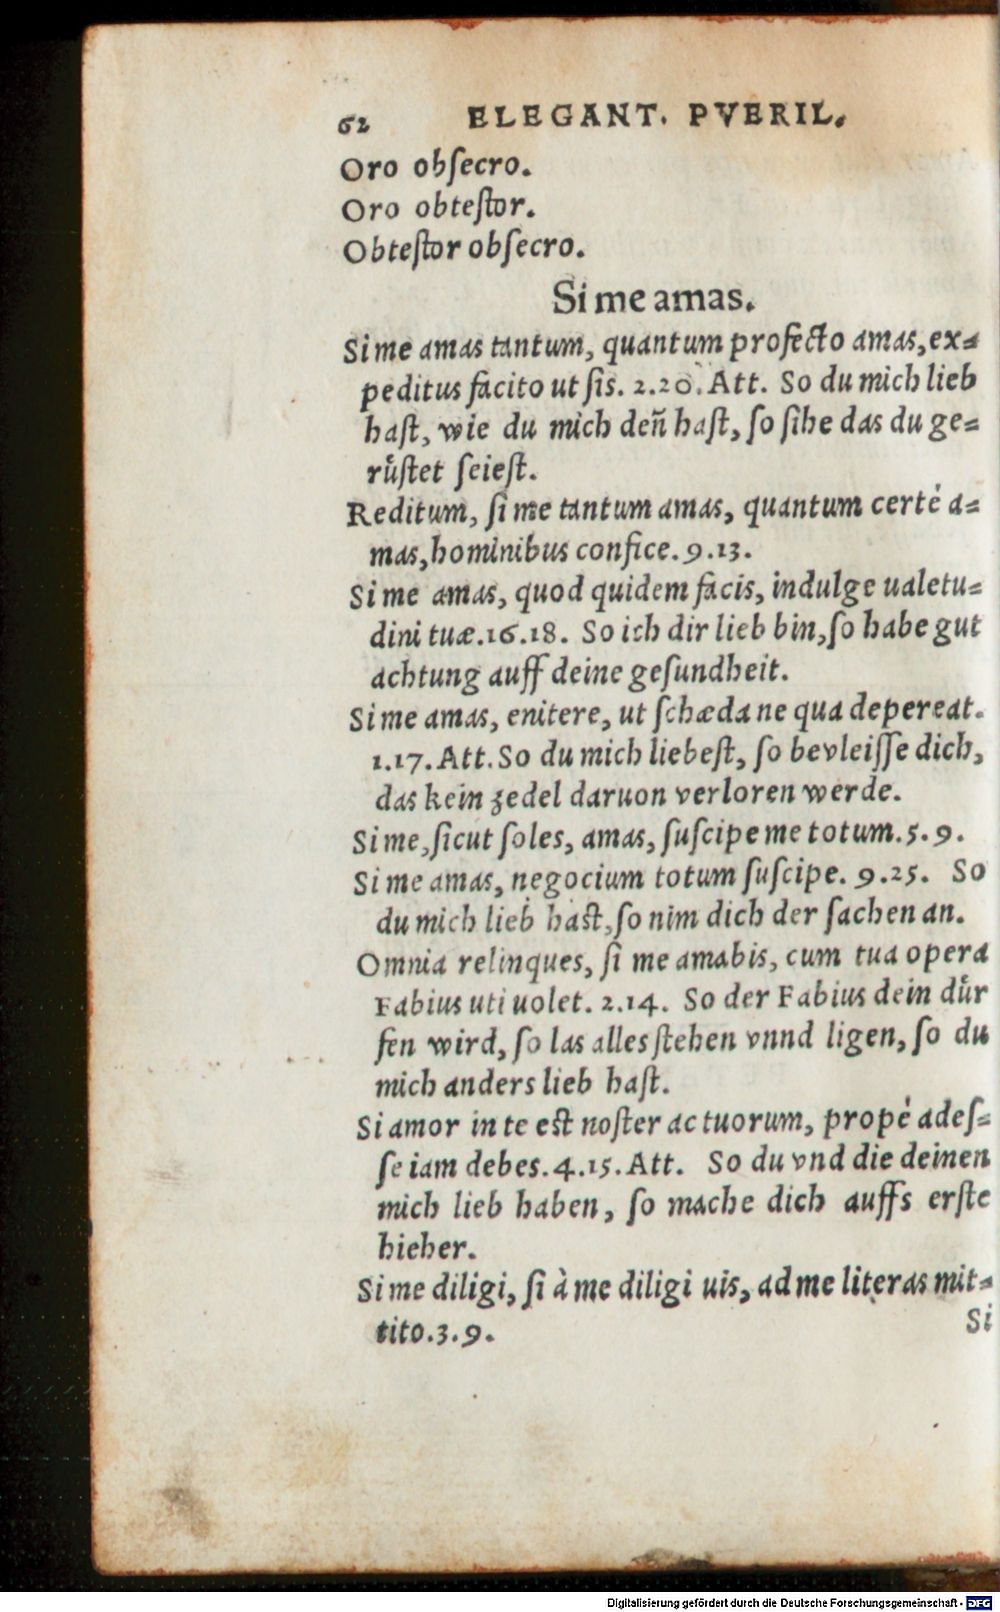 62 ELEGANT. PVERIL.
Oro obſecro.
Oro obteſtor.
Obteſtor obſecro.
Si me amas.
Si me amas tantum, quantum profecto amas, ex=
peditus facito ut ſis. 2.20. Att. So du mich lieb
haſt, wie du mich den̄ haſt, ſo ſihe das du ge=
ruͤſtet ſeieſt.
Reditum, ſi me tantum amas, quantum certè a=
mas, hominibus confice. 9.13.
Si me amas, quod quidem facis, indulge ualetu=
dini tuæ. 16.18. So ich dir lieb bin, ſo habe gut
achtung auff deine geſundheit.
Si me amas, enitere, ut ſchæda ne qua depereat.
1.17. Att. So du mich liebeſt, ſo bevleiſſe dich,
das kein zedel daruon verloren werde.
Si me, ſicut ſoles, amas, ſuſcipe me totum. 5.9.
Si me amas, negocium totum ſuſcipe. 9.25. So
du mich lieb haſt, ſo nim dich der ſachen an.
Omnia relinques, ſi me amabis, cum tua opera
Fabius uti uolet. 2.14. So der Fabius dein duͤr
fen wird, ſo las alles ſtehen vnnd ligen, ſo du
mich anders lieb haſt.
Si amor in te eſt noſter ac tuorum, propè adeſ=
ſe iam debes. 4.15. Att. So du vnd die deinen
mich lieb haben, ſo mache dich auffs erſte
hieher.
Si me diligi, ſi à me diligi uis, ad me literas mit=
tito. 3.9.
Si
Digitalisierung gefördert durch die Deutsche Forschungsgemeinschaft - DFG